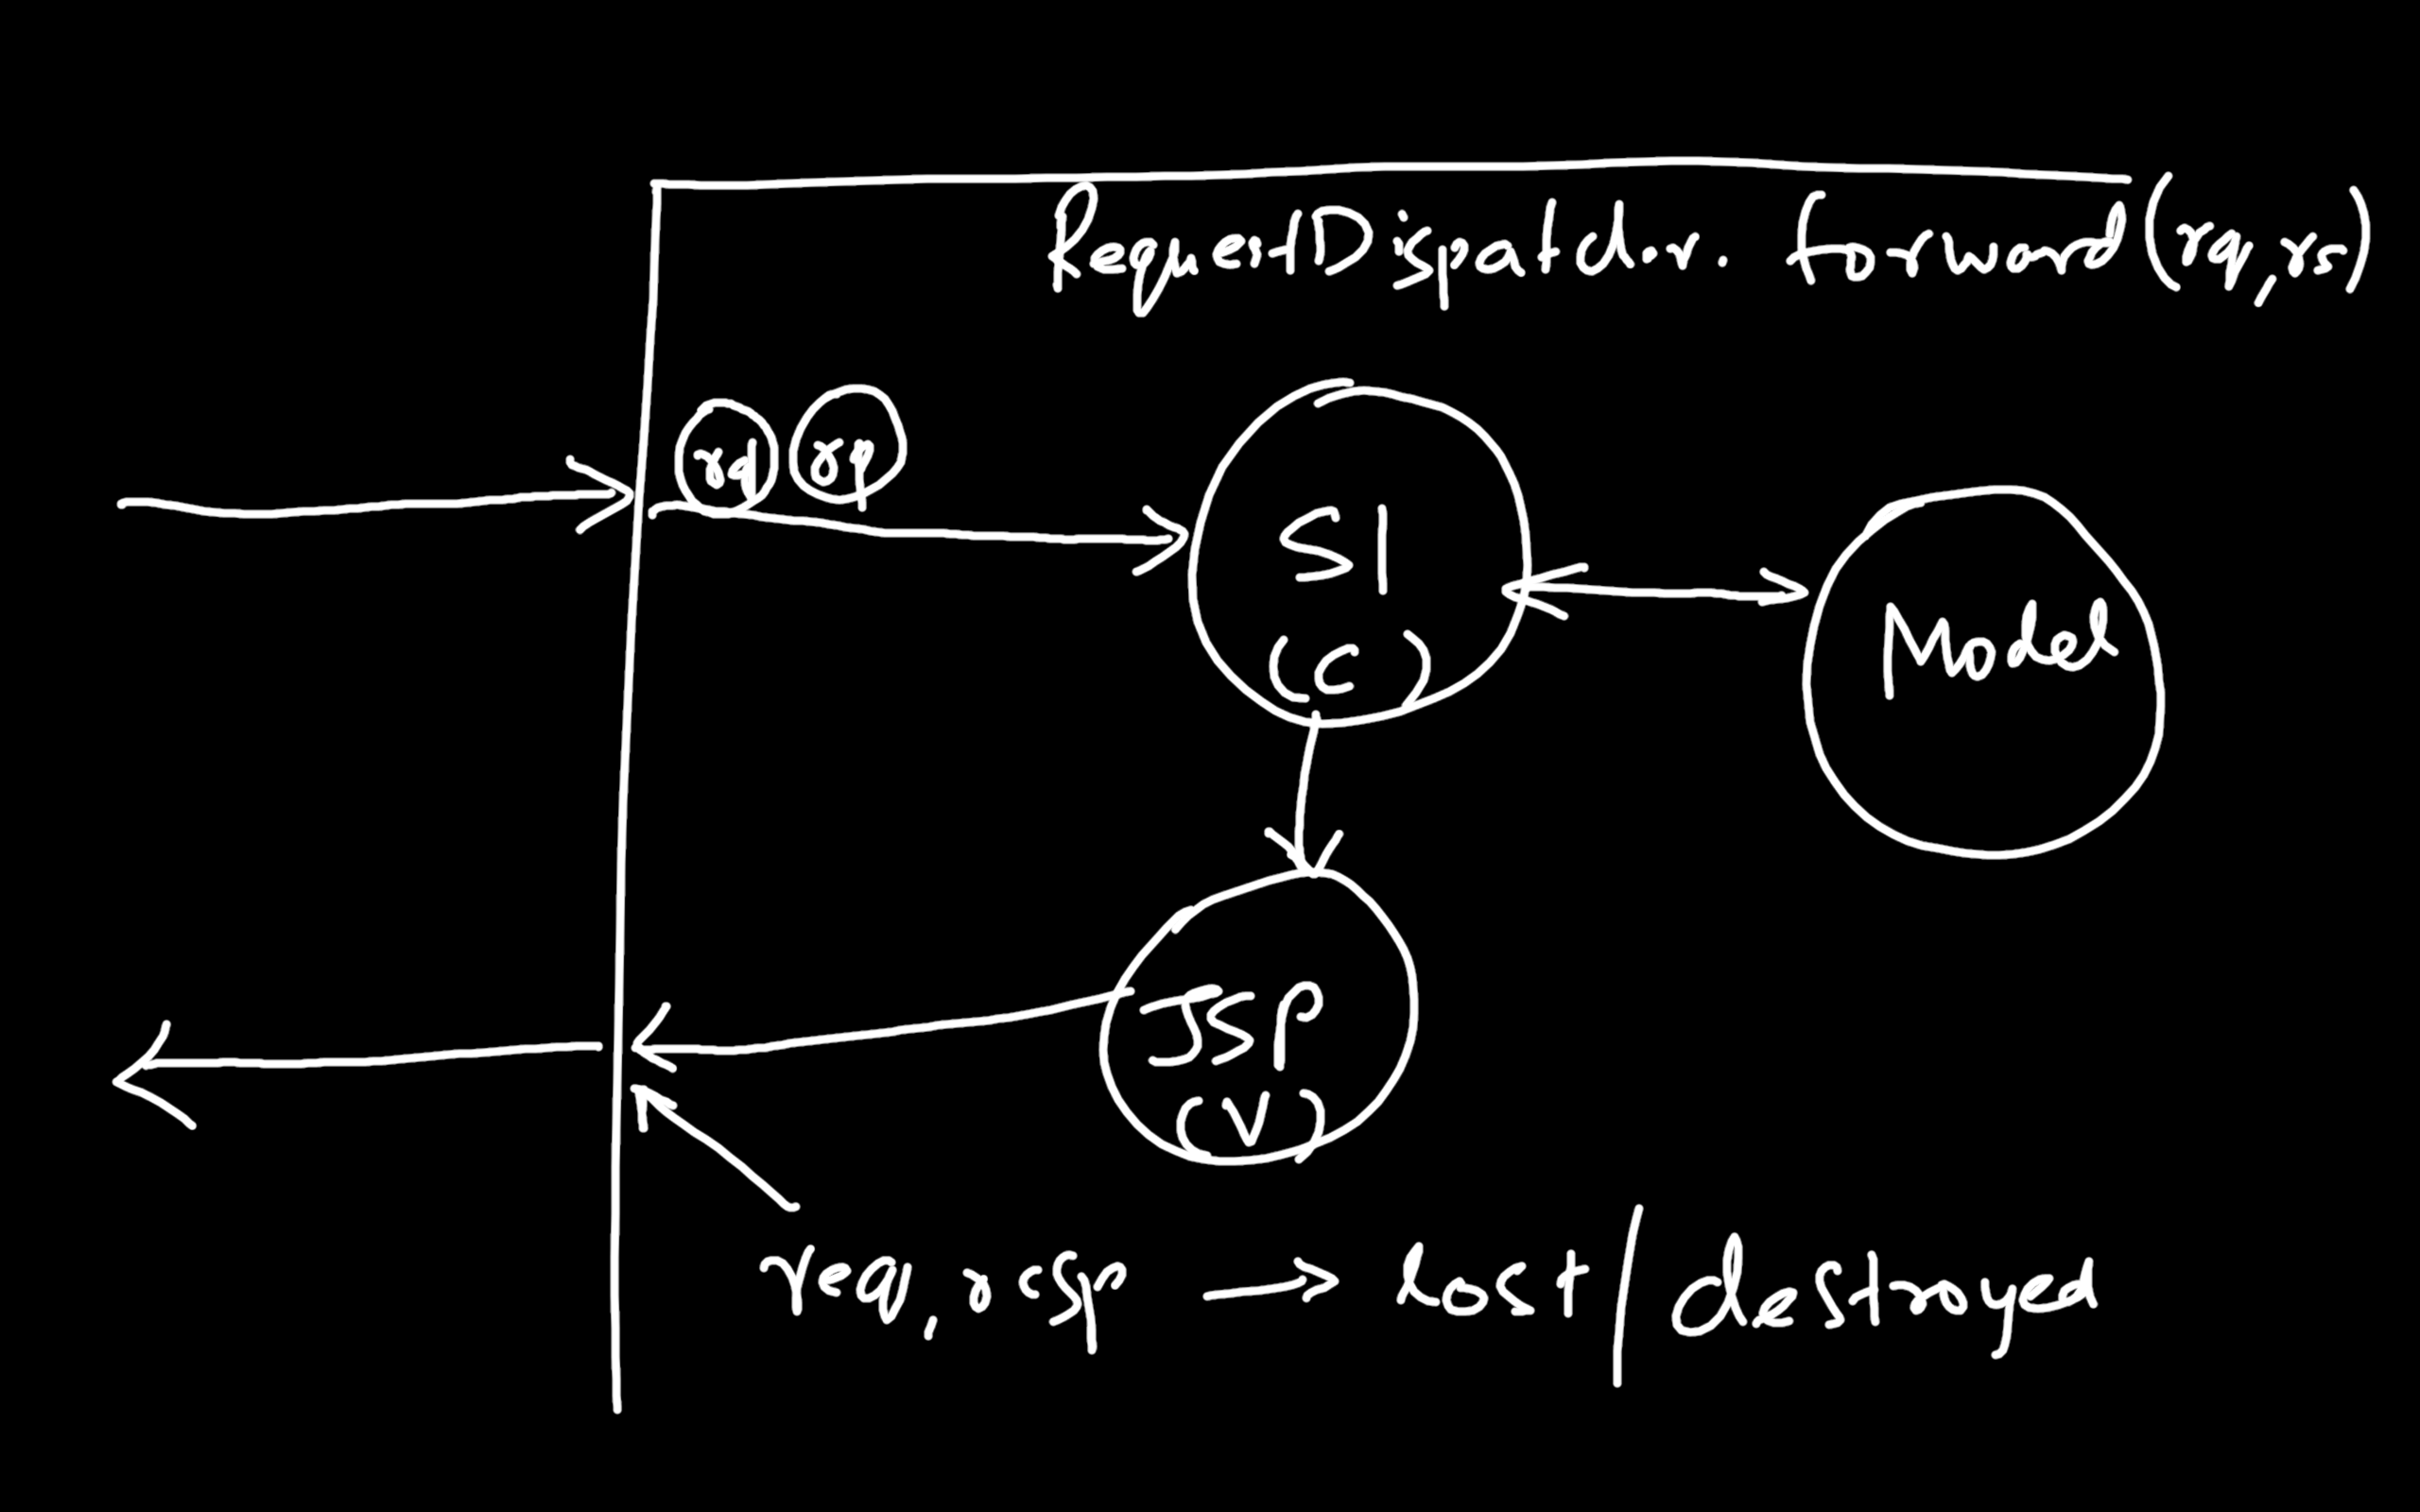 RequestDispatcher. forward(rq,rs)
rq rp
S1
(C)
Model
JSP
(V)
req, resp → Lost/destroyed